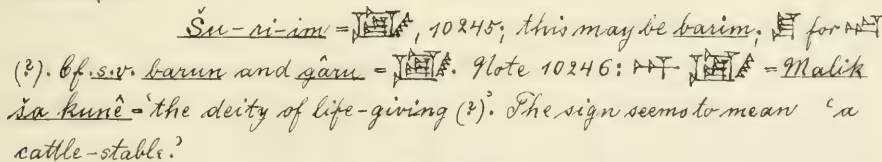 Šu-ri-im = , 10245; this may be barim; for
(?). Cf. s.v. barun and gâru = . Note 10246: = Malik
ša kunê = 'the deity of life-giving (?)'. The sign seems to mean 'a
cattle-stable.'